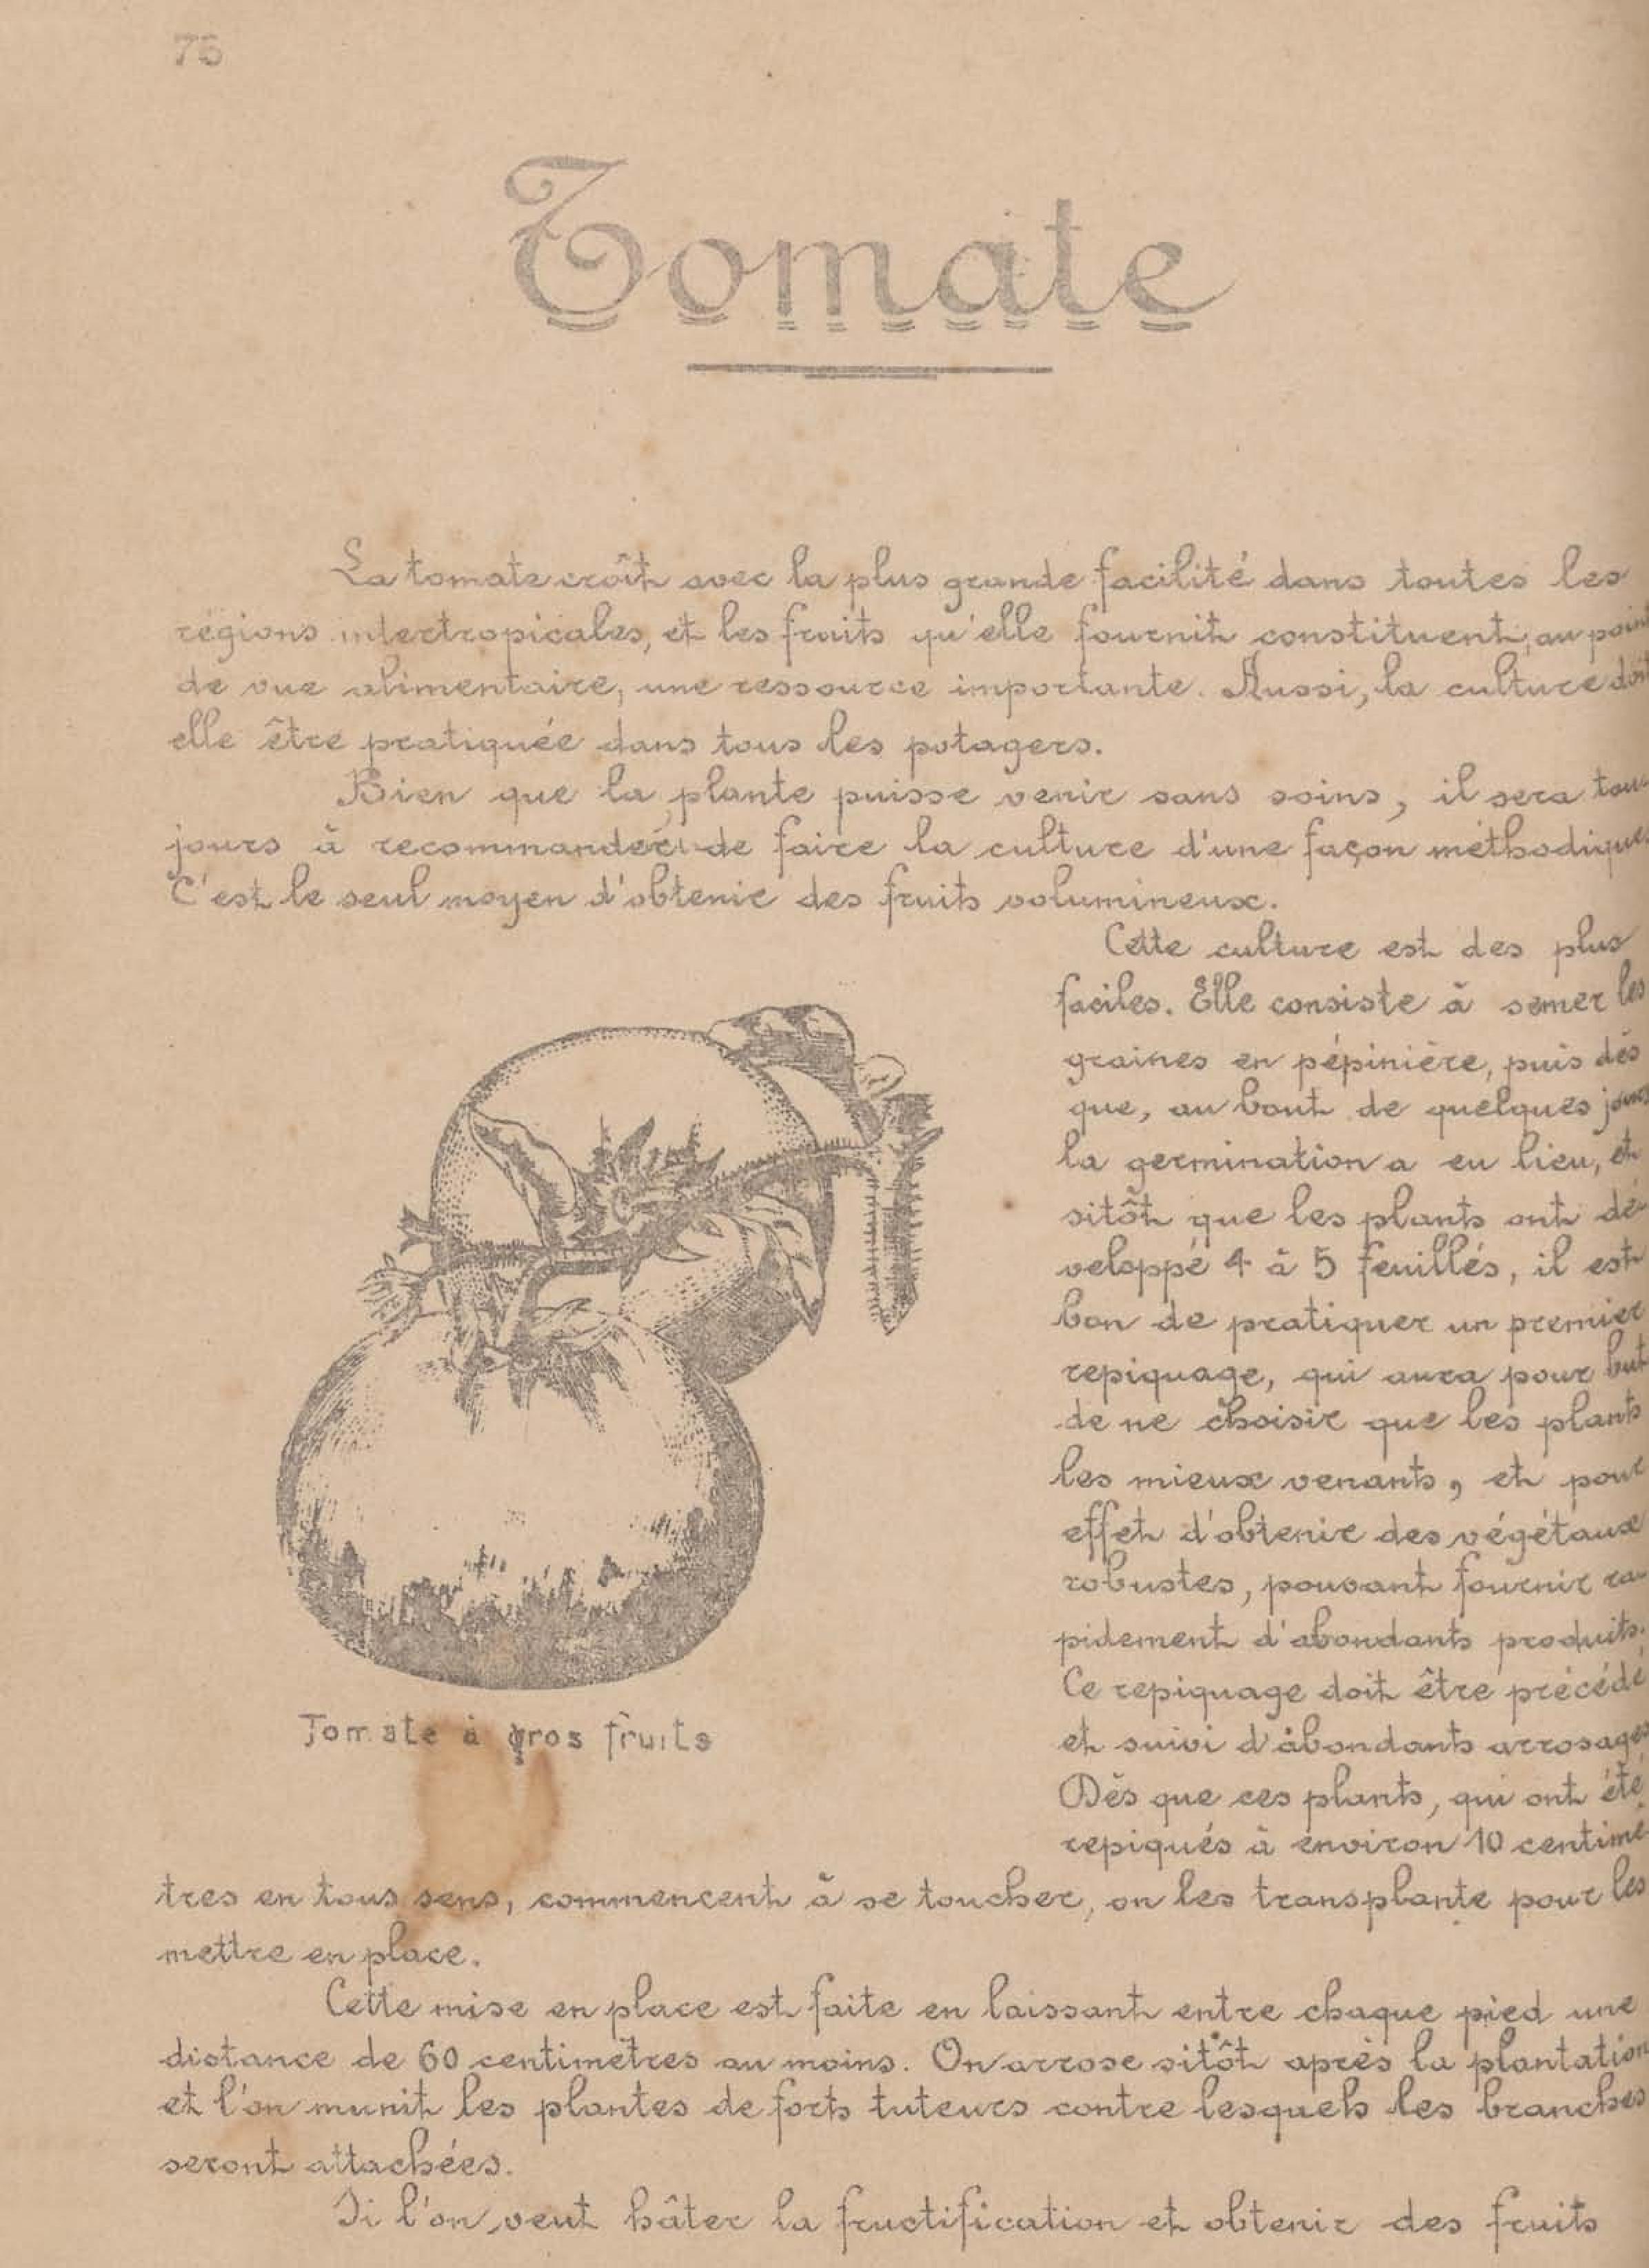 75
Tomate
La tomate croît avec la plus grande facilité dans toutes les
régions intertropicales, et les fruits qu'elle fournit constituent, au point
de vue alimentaire, une ressource importante. Aussi, la culture doit
elle être pratiquée dans tous les potagers.
Bien que la plante puisse venir sans soins, il sera tou-
jours à recommander de faire la culture d'une façon méthodique.
C'est le seul moyen d'obtenir des fruits volumineux.
Cette culture est des plus
faciles. Elle consiste à semer les
graines en pépinière, puis dès
que, au bout de quelques jours
la germination a eu lieu, et
sitôt que les plants ont dé-
veloppé 4 à 5 feuilles, il est
bon de pratiquer un premier
repiquage, qui aura pour but
de ne choisir que les plants
les mieux venants, et pour
effet d'obtenir des végétaux
robustes, pouvant fournir ra-
pidement d'abondants produits.
Ce repiquage doit être précédé
et suivi d'abondants arrosages
Dès que ces plants, qui ont été
repiqués à environ 10 centimè
Tomate à gros fruits
tres en tous sens, commencent à se toucher, on les transplante pour les
mettre en place.
Cette mise en place est faite en laissant entre chaque pied une
distance de 60 centimètres au moins. On arrose sitôt après la plantation
et l'on munit les plantes de forts tuteurs contre lesquels les branches
seront attachées.
Si l'on veut hâter la fructification et obtenir des fruits